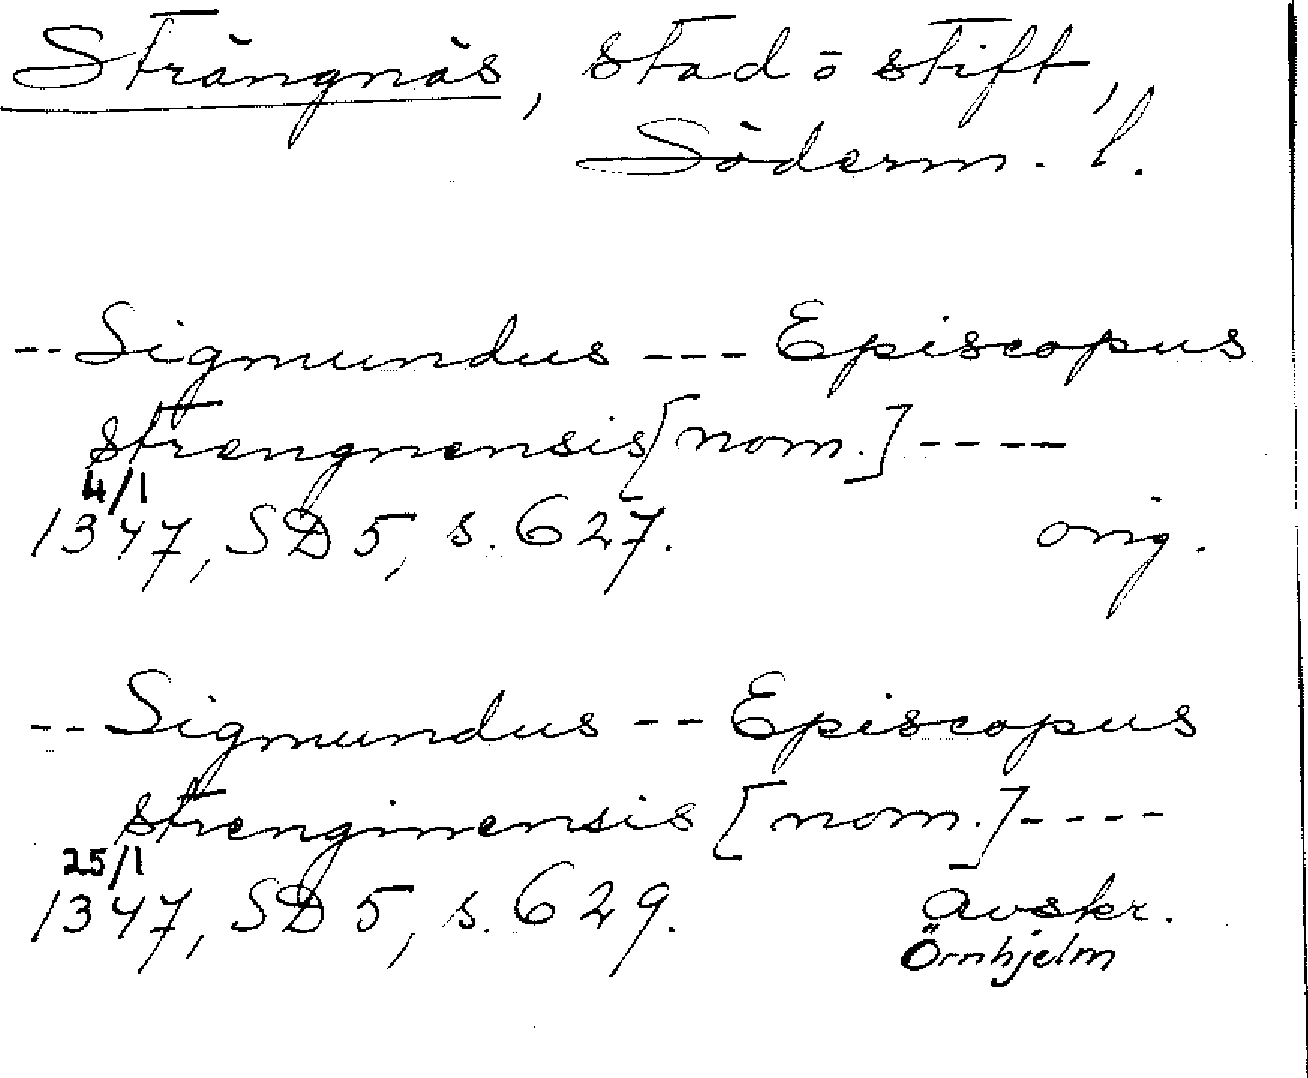 Strängnäs, stad o stift,
Söderm. l.
-- Sigmundus --- Episcopus
strengnensis [nom.] ----
4/1
1347, SD 5, s. 627. orig.
-- Sigmundus -- Episcopus
strenginensis [nom.] ----
25/1
1347, SD 5, s. 629. avskr.
Örnhjelm